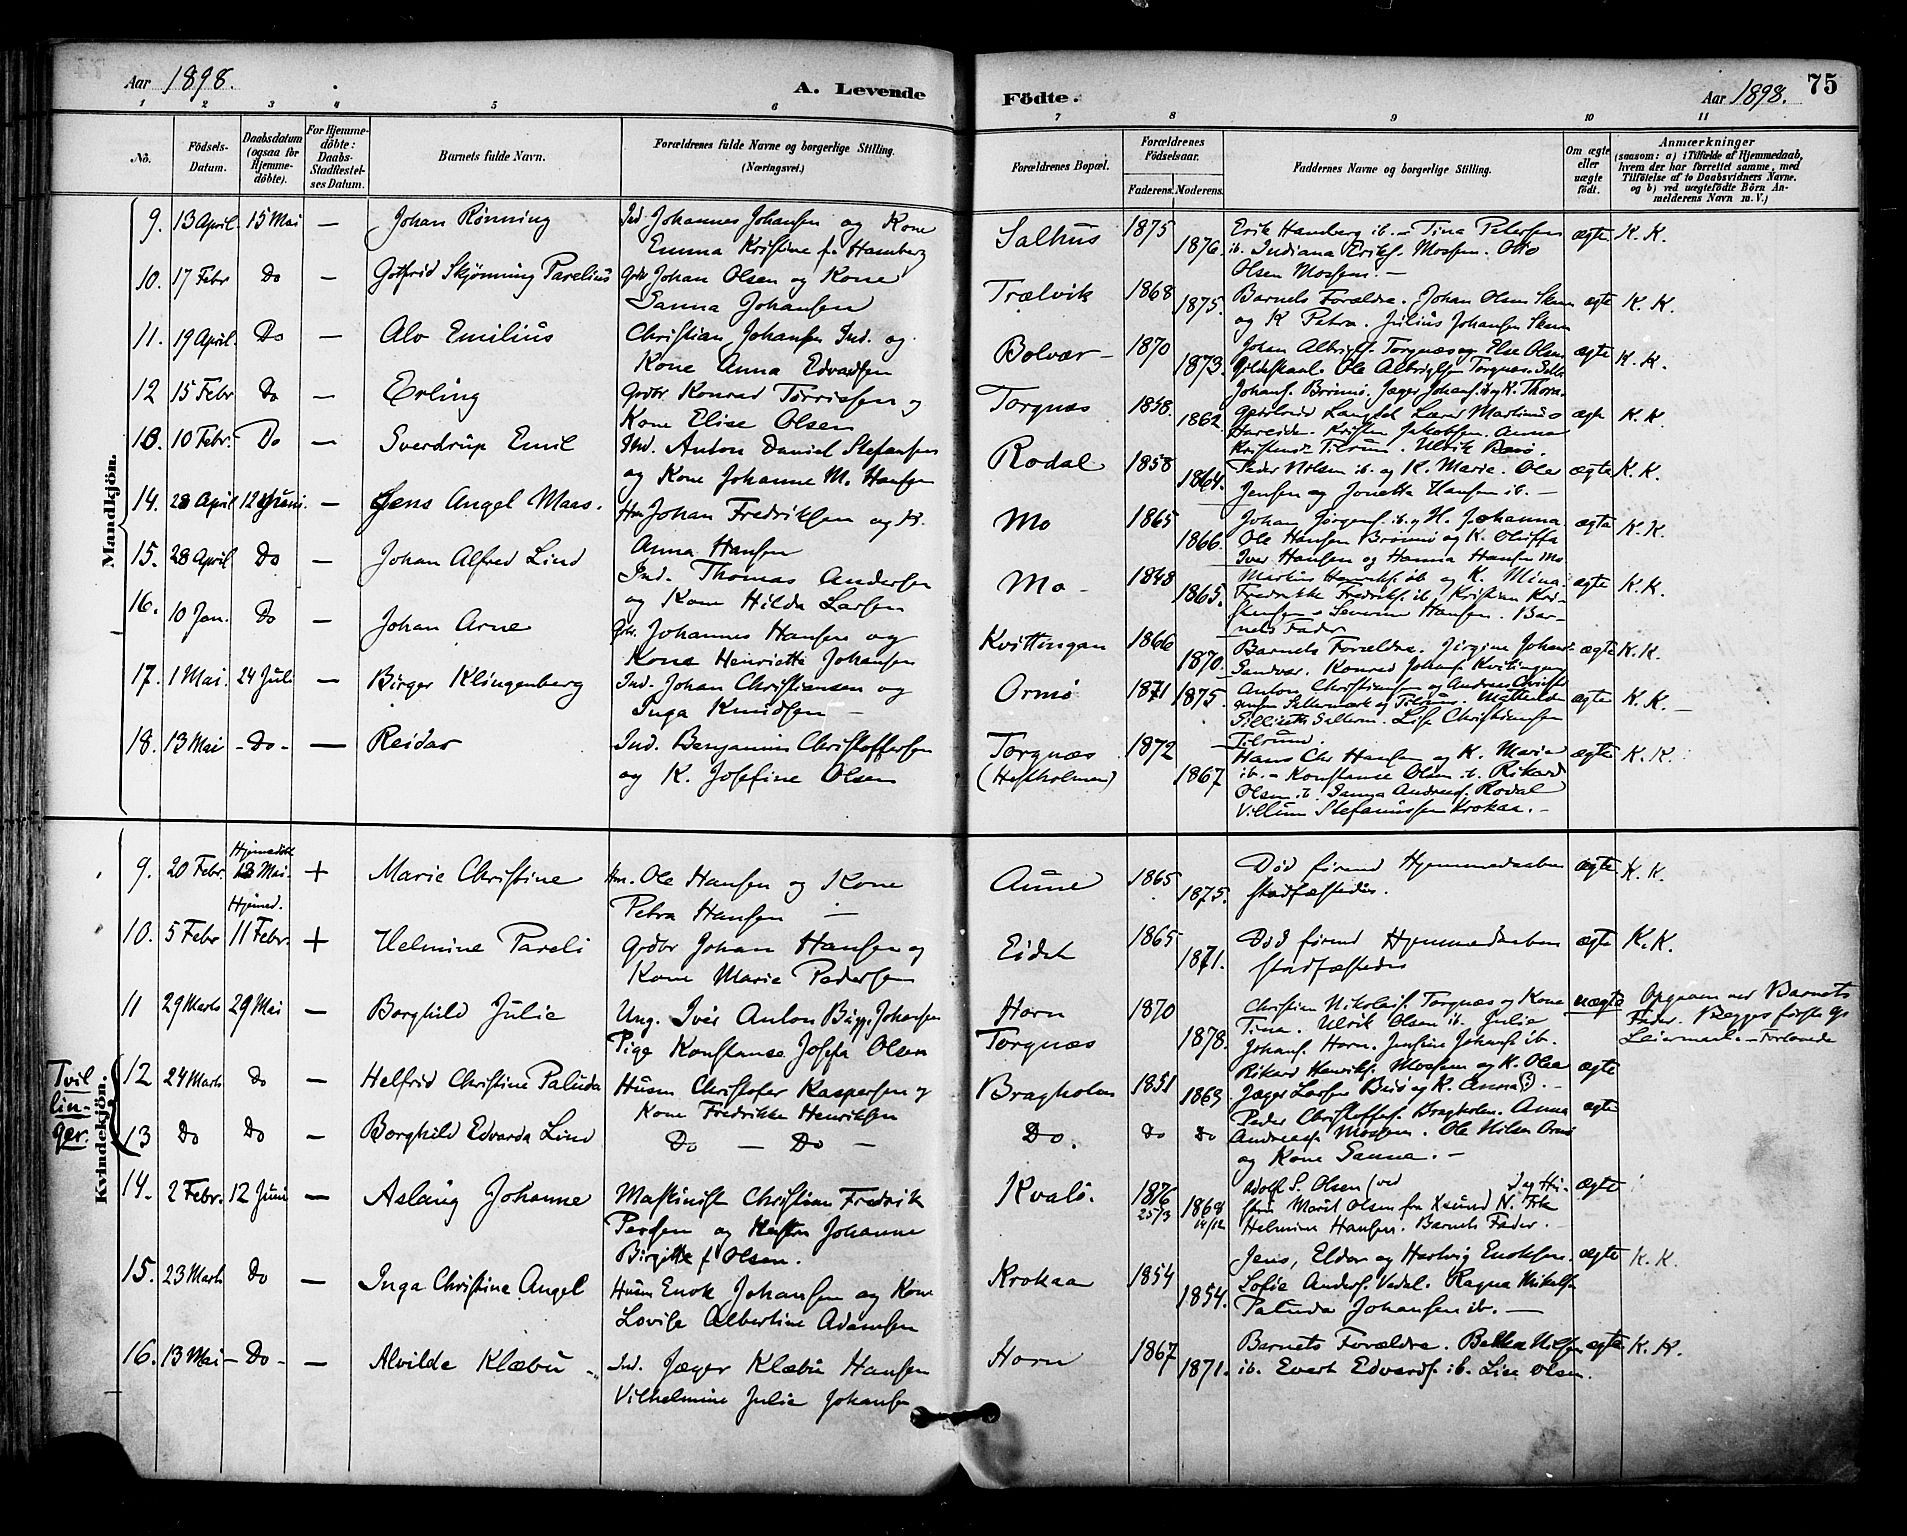 Aar 1898.
A. Levende
Födte.
Aar 1898.
75
1 2 3 4 5 6 7 8 9 10 11
No.
Födsels-Datum.
Daabsdatum (ogsaa for Hjemme-döbte).
For Hjemme-döbte: Daabs-Stadfestel-ses Datum.
Barnets fulde Navn.
Forældrenes fulde Navne og borgerlige Stilling. (Næringsvei.)
Forældrenes Bopæl.
Forældrenes Födselsaar.
Faderens. Moderens.
Faddernes Navne og borgerlige Stilling.
Om ægte eller uægte födt.
Anmærkninger
(saasom: a) i Tilfælde af Hjemmedaab, hvem der har forrettet samme, med Tilföielse af to Daabsvidners Navne, og b) ved uegtefödte Börn An-melderens Navn m. V.)
Mandkjön.
9. 13 April. 15 Mai — Johan Rönning Ind. Johannes Johansen og Kone
Emma Kristine f. Hamberg Salhus 1875 1876. Erik Hamberg ib. – Tina Petersen
ib. Indiana Eriks. Mossem. Otto
Olsen Mossem. — ægte K. K.
10. 17 Febr Do — Gotfrid Skjönning Parelius Grdbr Johan Olsen og Kone
Sanna Johansen Trælvik 1868 1875. Barnets Forældre. Johan Olsen
og K Petra. Julius Johansen ægte K. K.
11. 19 April. Do — Alv Emilius Christian Johansen Ind. og
Kone Anna Edvardsen Bolvær 1870 1873. Johan Torgnæs og Else Olsen
Gildeskaal. Ole Torgnæs. ægte K. K.
12 15 Febr Do — Erling Grdbr Konrad Torrissen og
Kone Elise Olsen Torgnæs 1858. 1862. Kristen Jakobsen. Anna ægte K. K.
13. 10 Febr. Do — Sverdrup Emil Ind. Anton Daniel Stefansen
og Kone Johanne M. Hansen Rodal 1858 1864. Peder Nilsen ib. og K. Marie. Ole
Jensen og Jonetta Hansen ib. — ægte K. K.
14. 28 April 12 Juni. — Jens Angel Maas. Hm Johan Fredriksen og K.
Anna Hansen Mo 1865 1866. Johan Jörgens. ib. og H. Johanna
Ole Hansen Brönnö og K. Oliffa
Iver Hansen og Hanna Hansen Mo ægte K. K.
15. 28 April Do — Johan Alfred Lind Ind. Thomas Andersen
og Kone Hilda Larsen Mo - 1848 1865. Martin Henriks. ib og K. Mina
Fredrikke Fredriks. ib. Kristian
Severin Hansen. Bar-
nets Fader ægte K. K.
16. 10 Jan. Do — Johan Arne Johannes Hansen og
Kone Henriette Johansen Kvittingen 1866 1870. Barnets Forældre. Jörgine Johans
Sandvær. Konrad Johans. ægte K. K.
17. 1 Mai. 24 Juli — Birger Klingenberg Ind. Johan Christiansen og
Inga Knudsen — Ormö 1871 1875. Anton Christiansen og Andreas
Lise Christiansen
Tilrum. ægte K. K. —
18. 13 Mai - Do - — Reidar Ind. Benjamin Christoffersen
og K. Josefine Olsen Torgnæs
(Hestholmen) 1872 1867 Hans Chr Hansen og K. Marie
ib. – Konstanse Olsen ib. Rikard
Olsen ib. Sanna Andreas. Rodal
Villum Stefanussen Krokaa. — ægte K. K.
Kvindekjön.
9. 20 Febr. Hjemmedöbt 18 Mai. + Marie Christine Hm. Ole Hansen og Kone
Petra Hansen — Aune 1865 1875. Död förend Hjemmedaaben
stadfæstedes. ægte K. K.
10. 5 Febr Hjemmed. 11 Febr. + Helmine Pareli Grdbr Johan Hansen og
Kone Marie Pedersen Eidet 1865 1871. Död förend Hjemmedaaben
stadfæstedes ægte K. K.
11 29 Marts 29 Mai — Borghild Julie Ung. Iver Anton Johansen
Pige Konstanse Josefa Olsen Horn
Torgnæs 1870 1878. Christian Nikolais. Torgnæs og Kone
Tina. Ulrik Olsen ib. Julia
Johans. Horn. Jensine Johans. ib. uægte Opgiven ved Barnets
Fader. Begges förste
Leiermaal. – Forlovede
Tvil
lin-
ger.
12 24 Marts Do — Helfrid Christine Palnda Husm Christofer Kaspersen og
Kone Fredrikke Henriksen Bragholm 1851 1863 Rikard Henriks. Mossem og K. Olea
Jæger Larsen og K. Anna. — ægte
13 Do Do — Borghild Edvarda Lind Do — Do — Do. Do Do Peder Christoffers. Bragholm. Anna
Andreas. Mossem. Ole Nilsen Ormö
og Kone Sanna. — ægte
14. 2 Febr. 12 Juni — Aslaug Johanne Maskinist Christian Fredrik
og Johanne
Birgitte f. Olsen. Kvalö. 1876 25/3 1868 Adolf S. Olsen (ved
Marit Olsen fra Xsund N. Frk
Helmine Hansen. Barnets Fader. — ægte
15. 23 Marts Do — Inga Christine Angel Husm Enok Johansen og Kone
Lovise Albertine Adamsen Krokaa 1854 1854. Jens, Eldor og Hartvig Enoksen.
Sofie Anders. Vedal. Ragna Mikels.
Palnda Johansen ib. — ægte K. K.
16. 13 Mai - Do - — Alvilde Klæbu Ind. Jæger Klæbu Hansen
Vilhelmine Julie Johansen Horn 1867 1871. Barnets Forældre. Nilsen
ib. Evert Edvards. ib. Lise Olsen. ægte K. K.